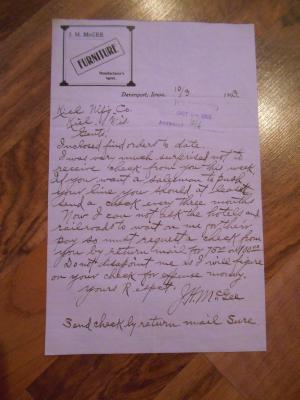 J. H. McGEE
FURNITURE
Manufacturer's
Agent.
Davenport, Iowa, 10/3 190
Kiel Mfg. Co.
Kiel, Wis.
Gents:
Inclosed find orders to date.
I was very much surprised not to
receive check from you this week.
If you want a salesman to push
your line you should at least
send a check every three months
Now I can not ask the hotels and
railroads to wait on me for their
pay so must request a check from
you by return mail for 75.00 or 100.00
Do not disapoint me as I will figure
on your check for expense money.
yours Respect.
J. H. McGee
Send check by return mail Sure